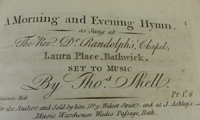 A Morning and Evening Hymn,
as Sung at
The Revd. Dr. Randolph's, Chapel,
Laura Place, Bathwick,
SET TO MUSIC
By Thos. Shell.
Pr
for the Author and Sold by him No. 9 Walcot Street, and at J. Ashley's
Music Warehouse Wades Passage, Bath.